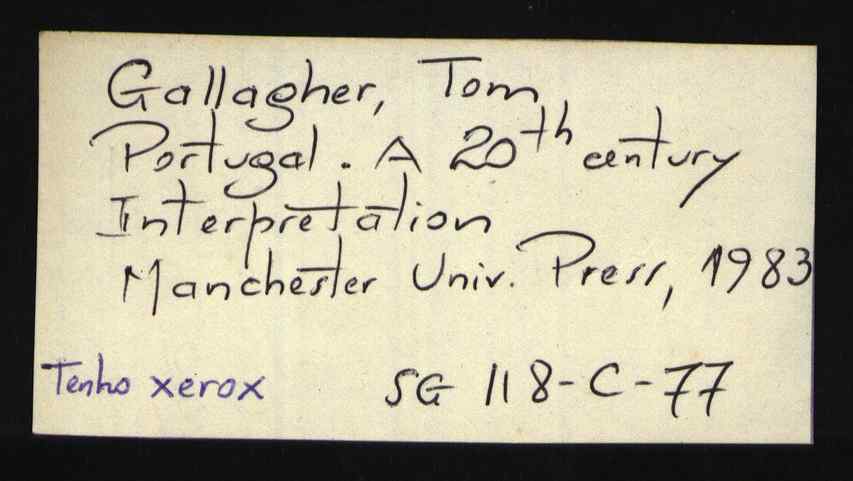 Gallagher, Tom
Portugal. A 20th century
Interpretation
Manchester Univ. Press, 1983
Tenho xerox SG 118-C-77